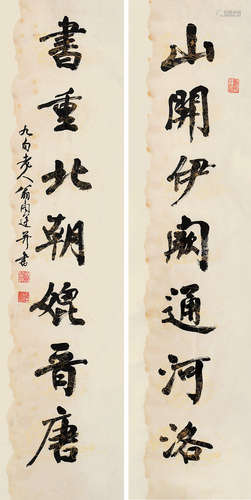 山開伊闕通河洛
書重北朝媲晉唐
九旬老人翁闓運并書